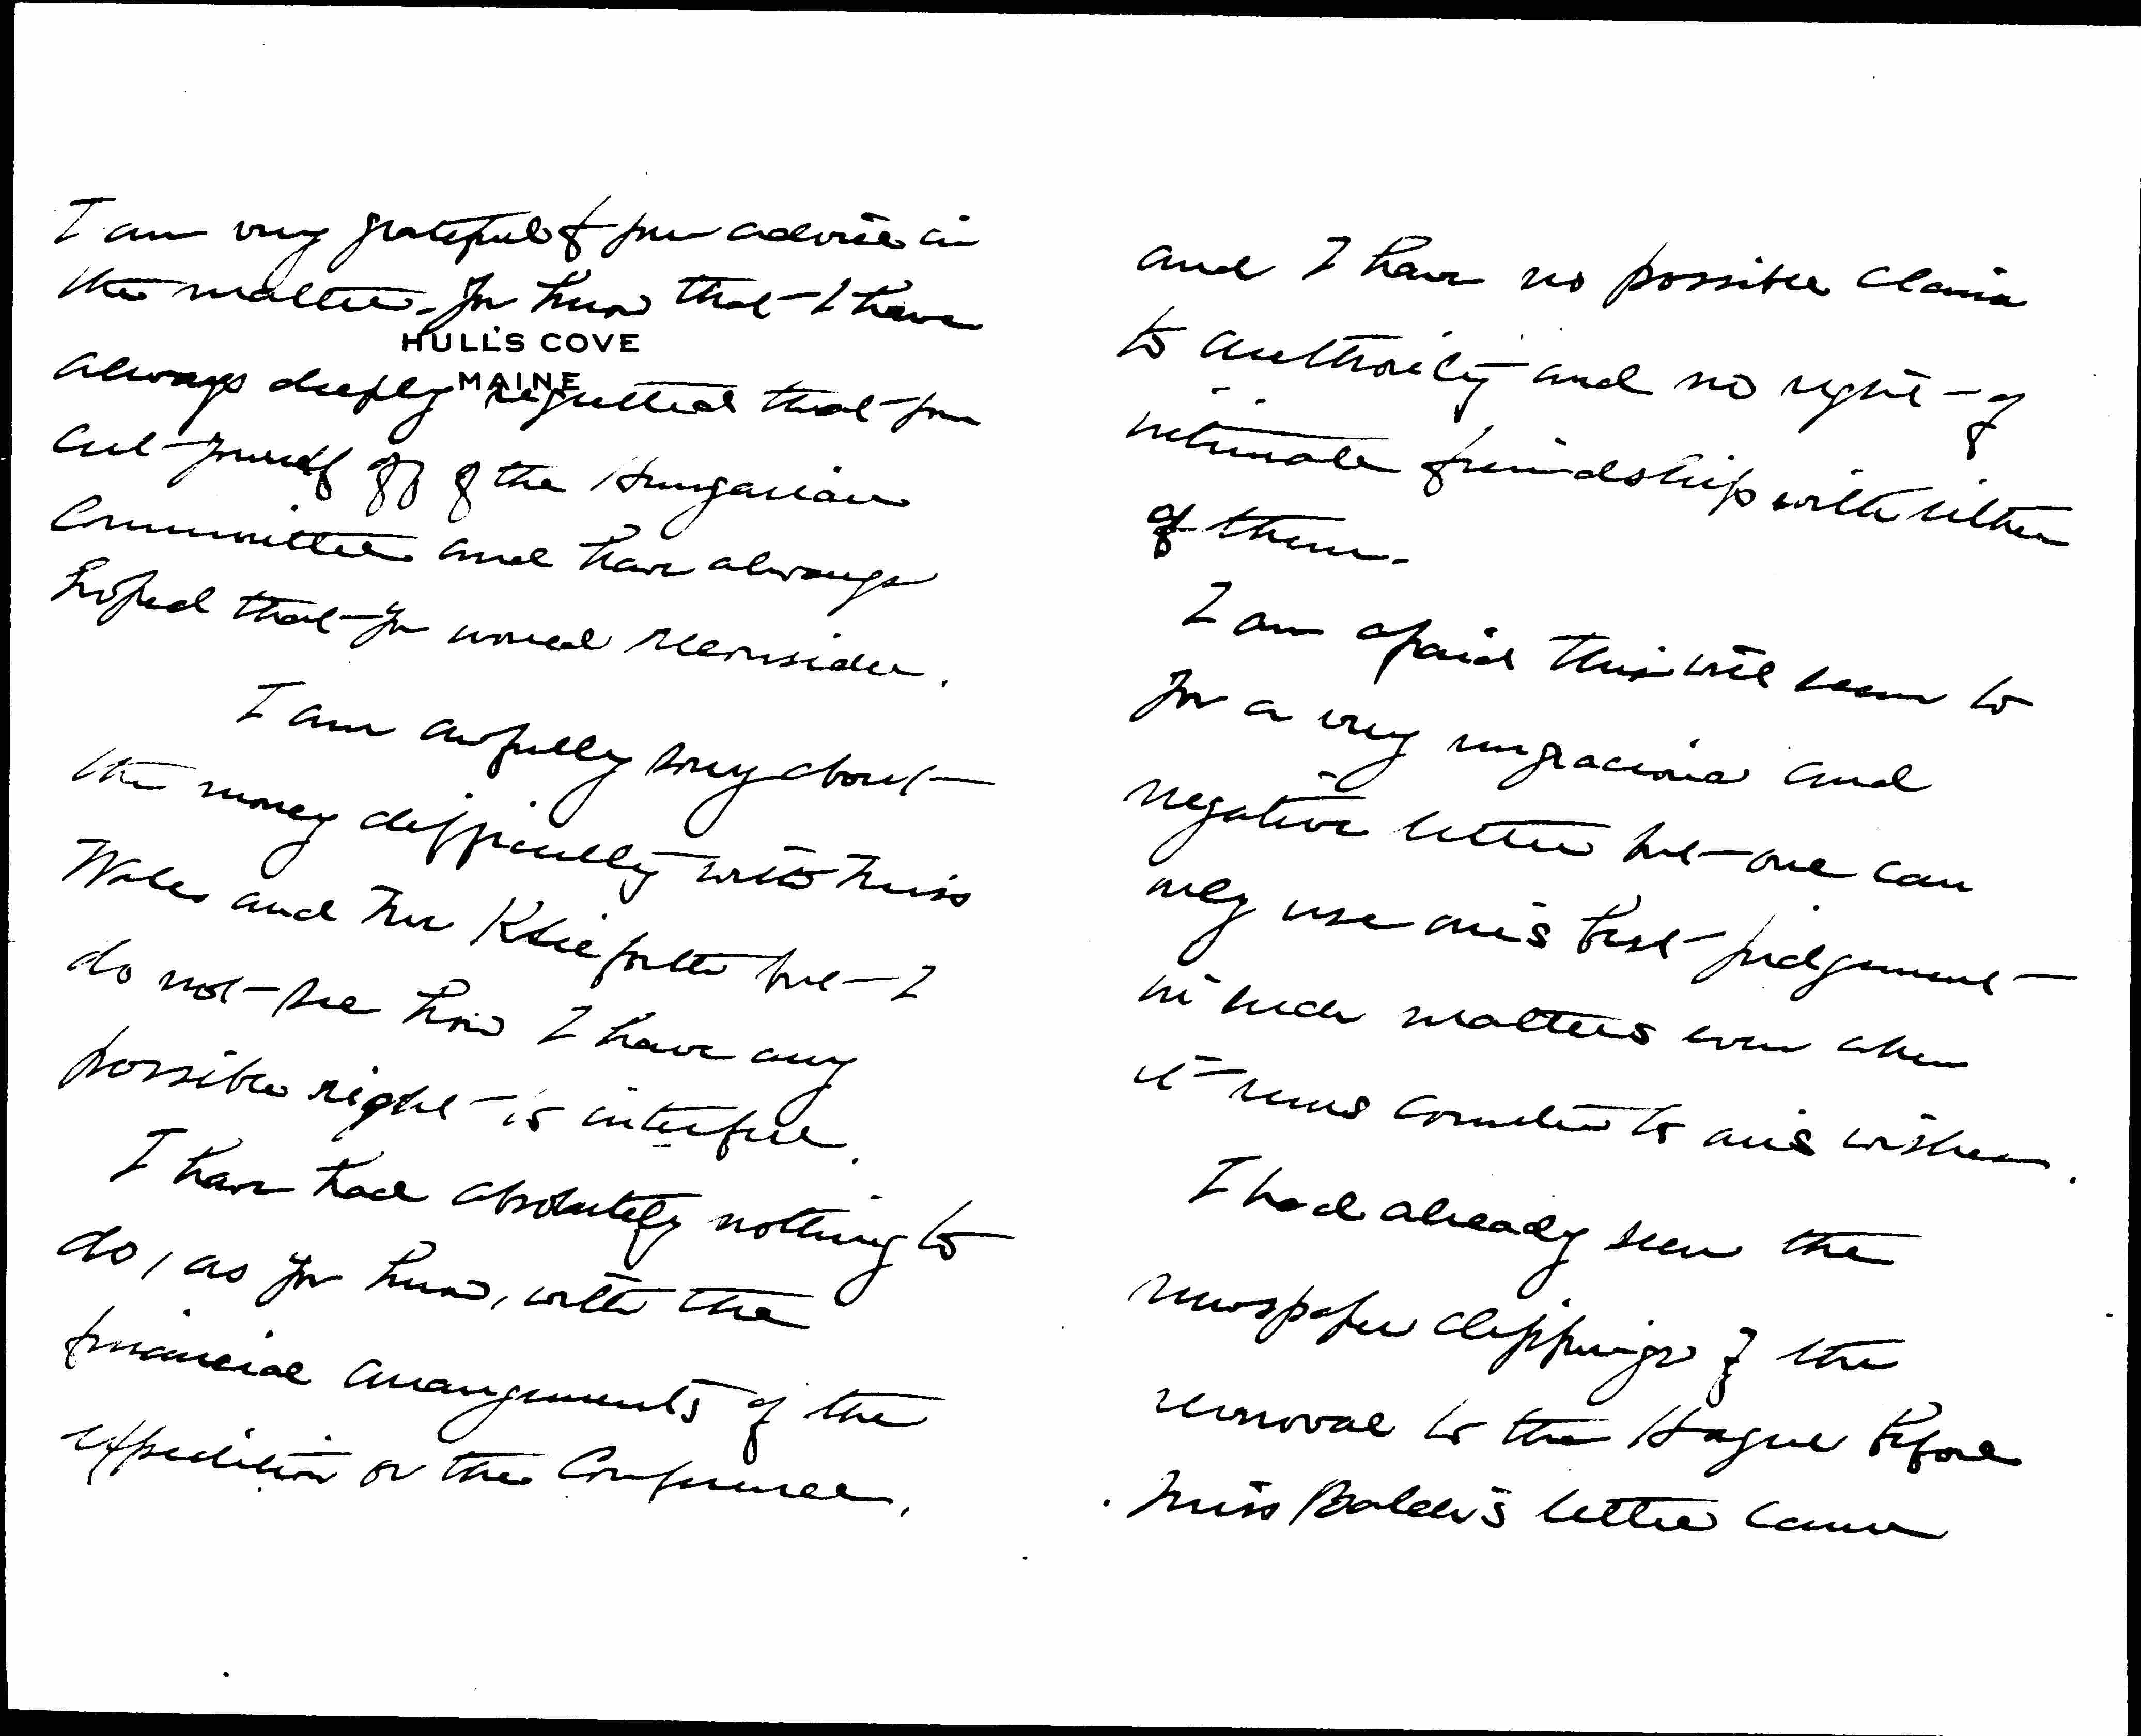 I am very grateful for your advice in
the matter. You know that I have
HULL'S COVE
MAINE
always deeply regretted that you
cut yourself off of the Hungarian
Committee and have always
hoped that you would reconsider.
I am awfully sorry about
the money difficulty with Miss
Wales and Mr
but I
do not see how I have any
possible right to interfere.
I have had absolutely nothing to
do, as you know, with the
financial arrangements of the
expedition or the Conference,
and I have no possible claim
to authority and no right of
intimate friendship with either
of them.
I am afraid this will seem to
you a very ungracious and
negative letter but one can
only use one's best judgement
in such matters even when
it runs counter to one's wishes.
I had already seen the
newspaper clippings of the
removal to the Hague before
Miss Balch's letter came